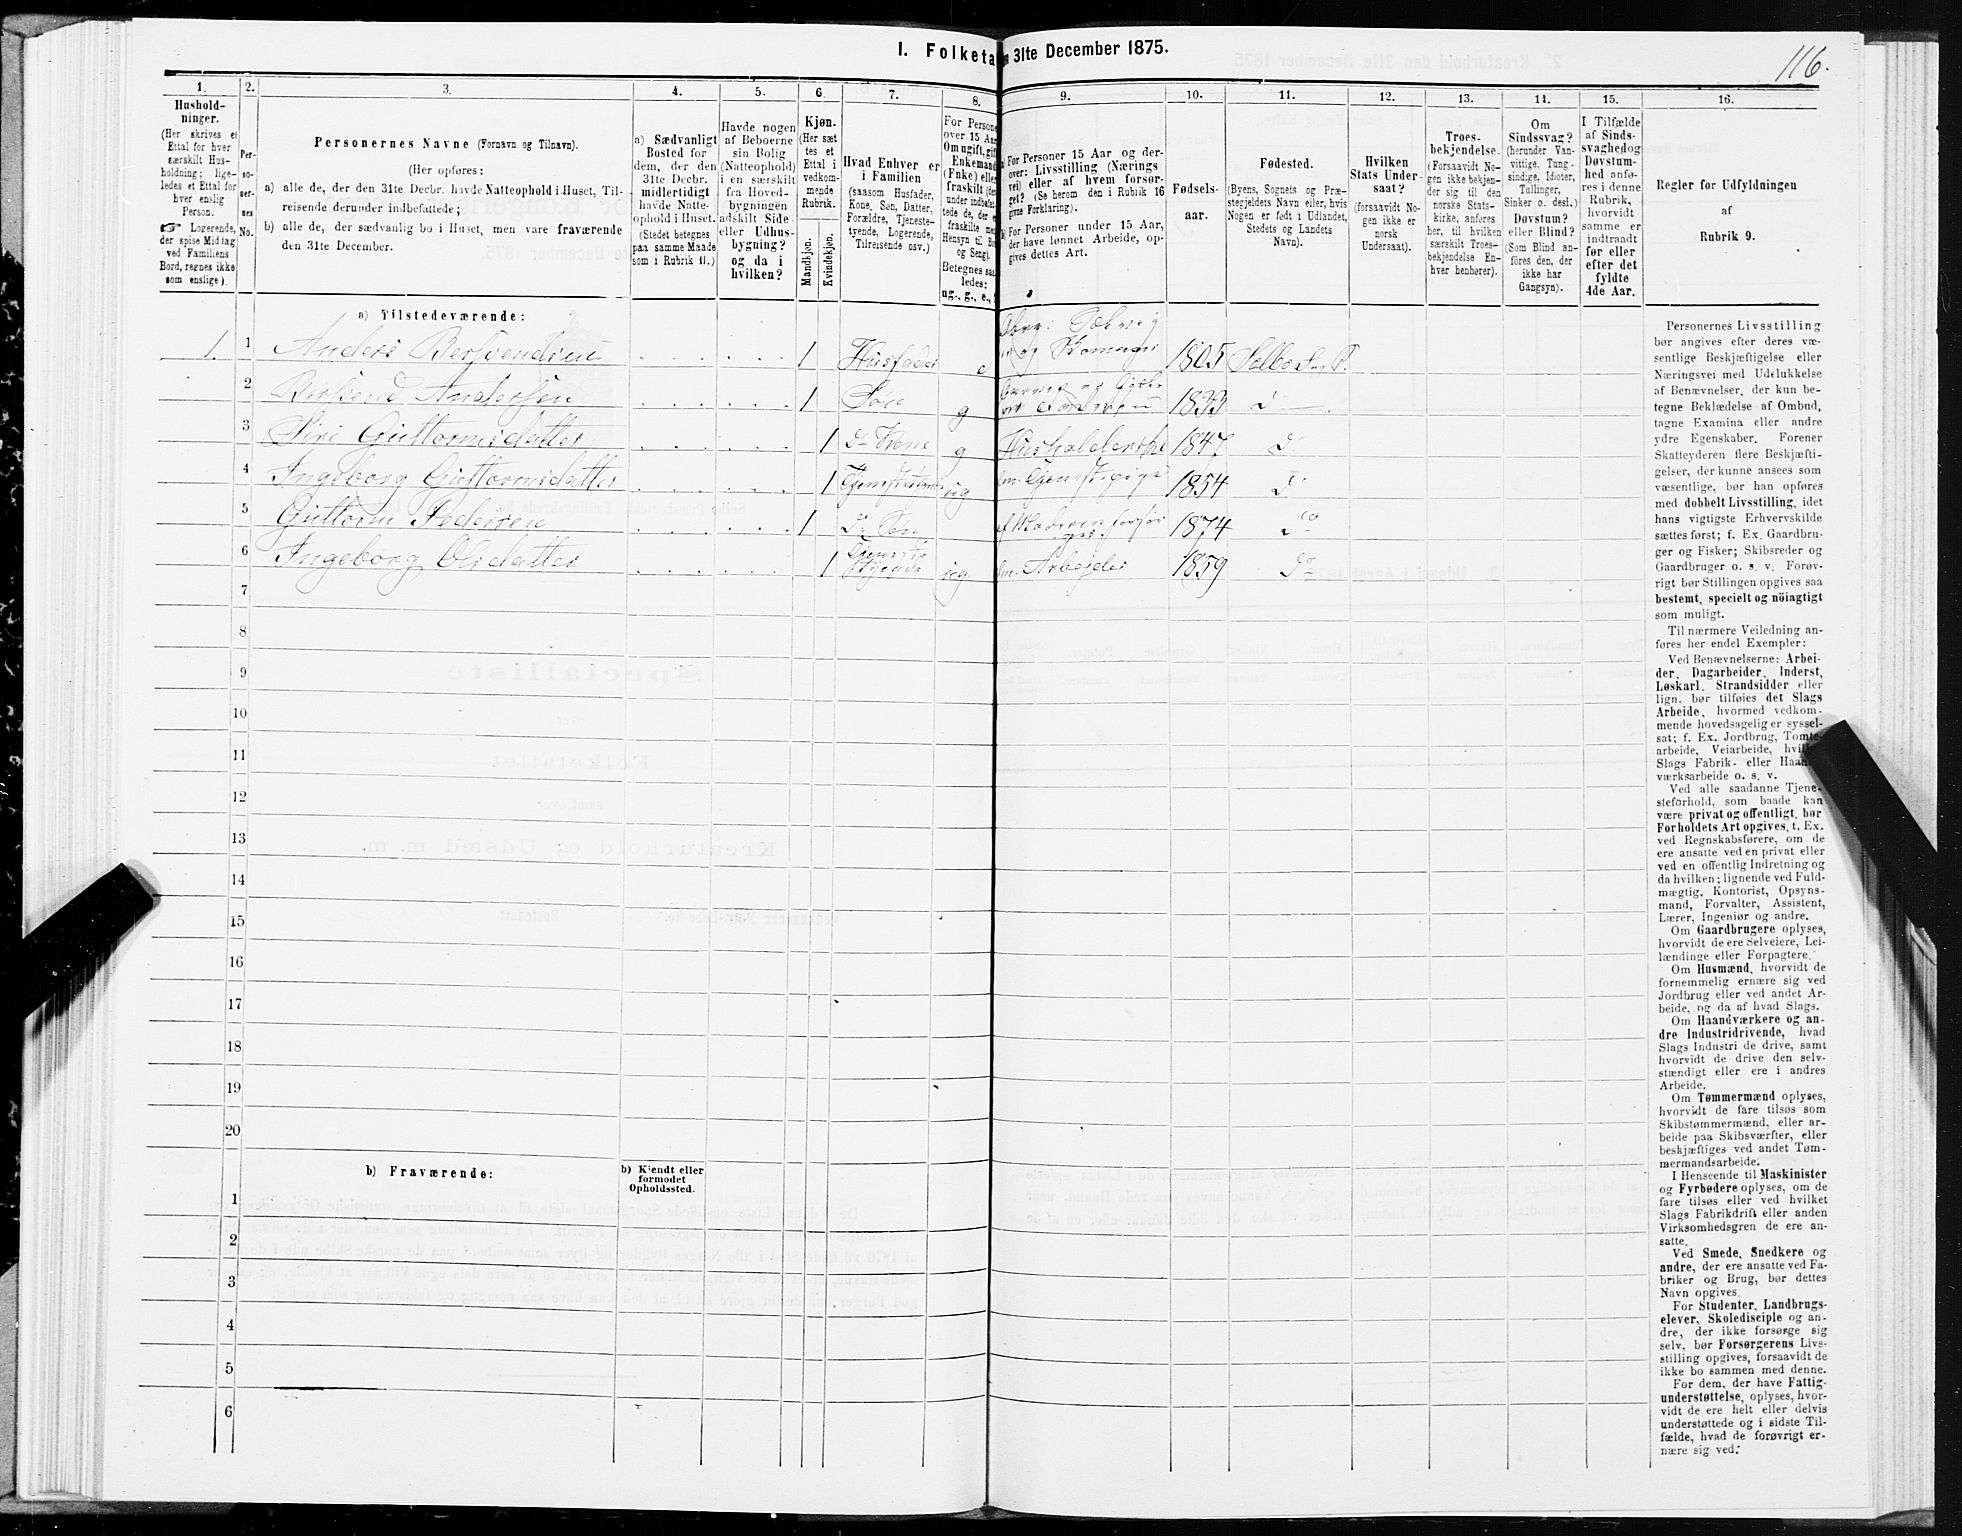 116.
I. Folketa 31te December 1875.
1. 2. 3. 4. 5. 6. 7. 8. 9. 10. 11. 12. 13. 14. 15. 16.
Hushold-
ninger.
(Her skrives et
Ettal for hver
særskilt Hus-
holdning; lige-
ledes et Ettal for
hver enslig
Person.
☞ Logerende,
der spise Middag
ved Familiens
Bord, regnes ikke
som enslige).
Per-
so-
ner-
nes
No.
Personernes Navne (Fornavn og Tilnavn).
(Her opføres:
a) alle de, der den 31te Decbr. havde Natteophold i Huset, Til-
reisende derunder indbefattede;
b) alle de, der sædvanlig bo i Huset, men vare fraværende
den 31te December.
a) Sædvanligt
Bosted for
dem, der den
31te Decbr.
midlertidigt
havde Natte-
ophold i Huset.
(Stedet betegnes
paa samme Maade
som i Rubrik 11.)
Havde nogen
af Beboerne
sin Bolig
(Natteophold)
i en særskilt
fra Hoved-
bygningen
adskilt Side-
eller Udhus-
bygning?
og da i
hvilken?
Kjøn.
(Her sæt-
tes et
Ettal i
vedkom-
mende
Rubrik.
Mandkjøn.
Kvindekjøn.
Hvad Enhver er
i Familien
(saasom Husfader,
Kone, Søn, Datter,
Forældre, Tjeneste-
tyende, Logerende,
Tilreisende osv.)
For Persone
over 15 Aar
Om ugift, gift
Enkemand
(Enke) eller
fraskilt (der
under indbefat
tede de, der e
fraskilte med
Hensyn til Bo
og Seng).
Betegnes saa
ledes:
ug., g., e.,
For Personer 15 Aar og der-
over: Livsstilling (Nærings
vei) eller af hvem forsør-
get? (Se herom den i Rubrik 16
givne Forklaring).
For Personer under 15 Aar,
der have lønnet Arbeide, op-
gives dettes Art.
Fødsels-
aar.
Fødested.
(Byens, Sognets og Præ-
stegjeldets Navn eller, hvis
Nogen er født i Udlandet,
Stedets og Landets
Navn).
Hvilken
Stats Under-
saat?
(forsaavidt No-
gen ikke er
norsk
Undersaat).
Troes-
bekjendelse.
(Forsaavidt No-
gen ikke bekjen-
der sig til den
norske Stats-
kirke, anføres
her, til hvilken
særskilt Troes-
bekjendelse En-
hver henhører).
Om
Sindssvag?
(herunder Van-
vittige, Tung-
sindige, Idioter,
Tullinger,
Sinker o. desl.)
Døvstum?
eller Blind?
(Som Blind an-
føres den, der
ikke har
Gangsyn).
I Tilfælde
af Sinds-
svaghed og
Døvstum-
hed anfø-
res i denne
Rubrik,
hvorvidt
samme er
indtraadt
før eller
efter det
fyldte
4de Aar.
Regler for Udfyldningen
af
Rubrik 9.
a) Tilstedeværende:
1. 1 Anders Bersvendsen 1 Husfader e 1805 Selbo S. og P.
2 Bersvend Andersen 1 Søn g 1833 D
3 Siri Guttormsdatter 1 Ds Kone g Husholderske 1847 D
4 Ingeborg Guttormsdatter 1 ug 1854 D
5 Guttorm Pedersen 1 Ds Søn 1874 Do
6 Ingeborg Olsdatter 1 ug. Arbejder 1859 Do
7
8
9
10
11
12
13
14
15
16
17
18
19
20
b) Fraværende:
b) Kjendt eller
formodet
Opholdssted.
1
2
3
4
5
6
Personernes Livsstilling
bør angives efter deres væ-
sentlige Beskjæftigelse eller
Næringsvei med Udelukkelse
af Benævnelser, der kun be-
tegne Beklædelse af Ombud,
tagne Examina eller andre
ydre Egenskaber. Forener
Skatteyderen flere Beskjæfti-
gelser, der kunne ansees som
væsentlige, bør han opføres
med dobbelt Livsstilling, idet
hans vigtigste Erhvervskilde
sættes først; f. Ex. Gaardbru-
ger og Fisker; Skibsreder og
Gaardbruger o. s. v. Forøv-
rigt bør Stillingen opgives saa
bestemt, specielt og nöiagtigt
som muligt.
Til nærmere Veiledning an-
føres her endel Exempler:
Ved Benævnelserne: Arbei-
der, Dagarbeider, Inderst,
Løskarl, Strandsidder eller
lign. bør tilføies det Slags
Arbeide, hvormed vedkom-
mende hovedsagelig er syssel-
sat; f. Ex. Jordbrug, Tomte-
arbeide, Veiarbeide, hvilket
Slags Fabrik- eller Haand-
værksarbeide o. s. v.
Ved alle saadanne Tjene-
steforhold, som baade kan
være privat og offentligt, bør
Forholdets Art opgives, t. Ex.
ved Regnskabsførere, om de
ere ansatte ved en privat eller
ved en offentlig Indretning og
da hvilken; lignende ved Fuld-
mægtig, Kontorist, Opsyns-
mand, Forvalter, Assistent,
Lærer, Ingeniør og andre.
Om Gaardbrugere oplyses,
hvorvidt de ere Selveiere, Lei-
lændinge eller Forpagtere.
Om Husmænd, hvorvidt de
fornemmelig ernære sig ved
Jordbrug eller ved andet Ar-
beide, og da af hvad Slags.
Om Haandværkere og an-
dre Industridrivende, hvad
Slags Industri de drive, samt
hvorvidt de drive den selv-
stændigt eller ere i andres
Arbeide.
Om Tømmermænd oplyses,
hvorvidt de fare tilsøs som
Skibstømmermænd, eller ar-
beide paa Skibsværfter, eller
beskjæftiges ved andet Tøm-
mermandsarbeide.
I Henseende til Maskinister
og Fyrbødere oplyses, om de
fare tilsøs eller ved hvilket
Slags Fabrikdrift eller anden
Virksomhedsgren de ere an-
satte.
Ved Smede, Snedkere og
andre, der ere ansatte ved Fa-
briker og Brug, bør dettes
Navn opgives.
For Studenter, Landbrugs-
elever, Skoledisciple og an-
dre, der ikke forsørge sig
selv, bør Forsørgerens Livs-
stilling opgives, forsaavidt de
ikke bo sammen med denne.
For dem, der have Fattig-
understøttelse, oplyses, hvor-
vidt de ere helt eller delvis
understøttede og i sidste Til-
fælde, hvad de forøvrigt er-
nære sig ved.